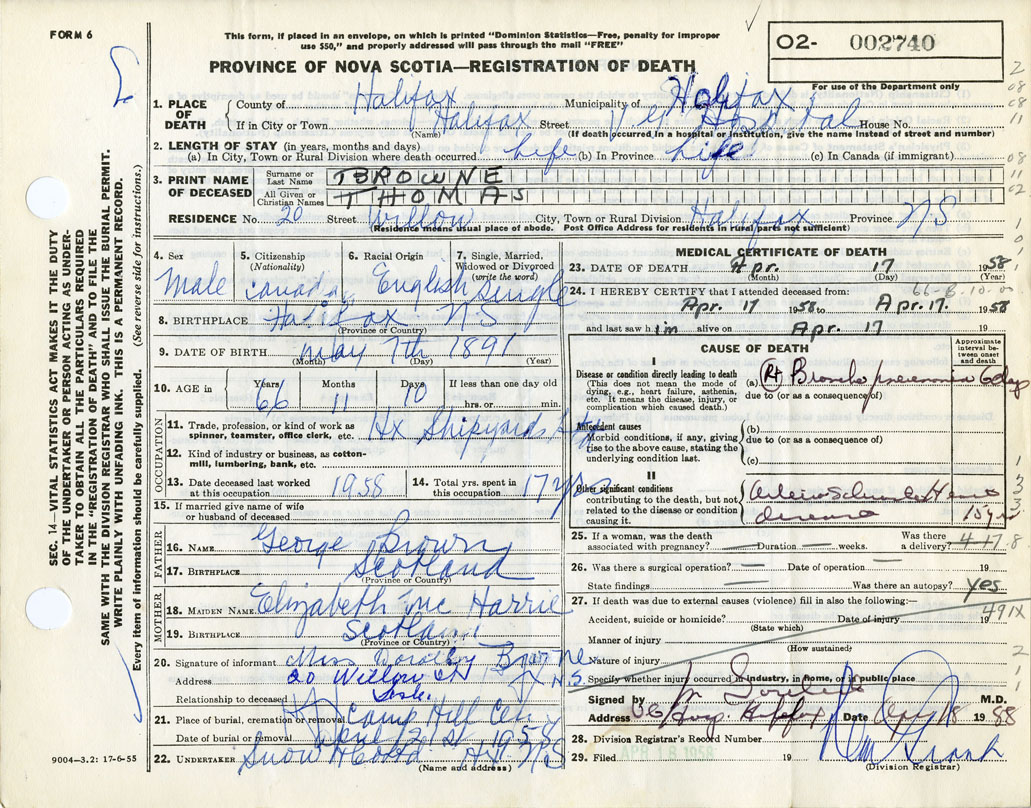 FORM 6
This form, if placed in an envelope, on which is printed "Dominion Statistics—Free, penalty for improper
use $50," and properly addressed will pass through the mail "FREE"
PROVINCE OF NOVA SCOTIA—REGISTRATION OF DEATH
02- 002740
For use of the Department only
1. PLACE OF DEATH
County of Halifax Municipality of Halifax
If in City or Town Halifax Street V. G. Hospital House No.
(Name) (If death occurred in a hospital or institution, give the name instead of street and number)
2. LENGTH OF STAY (in years, months and days)
(a) In City, Town or Rural Division where death occurred Life (b) In Province Life (c) In Canada (if immigrant)
3. PRINT NAME OF DECEASED
Surname or Last Name BROWNE
All Given or Christian Names THOMAS
RESIDENCE No. 20 Street Willow City, Town or Rural Division Halifax Province NS
(Residence means usual place of abode. Post Office Address for residents in rural parts not sufficient)
4. Sex Male
5. Citizenship (Nationality) Canada
6. Racial Origin English
7. Single, Married, Widowed or Divorced (write the word) Single
8. BIRTHPLACE Halifax NS
(Province or Country)
9. DATE OF BIRTH May 7th 1891
(Month) (Day) (Year)
10. AGE in Years 66 Months 11 Days 10 If less than one day old hrs. or min.
OCCUPATION
11. Trade, profession, or kind of work as spinner, teamster, office clerk, etc. Hx Shipyards
12. Kind of industry or business, as cotton-mill, lumbering, bank, etc.
13. Date deceased last worked at this occupation 1958
14. Total yrs. spent in this occupation 17 yrs
15. If married give name of wife or husband of deceased
FATHER
16. NAME George Brown
17. BIRTHPLACE Scotland
(Province or Country)
MOTHER
18. MAIDEN NAME Elizabeth Harrie
19. BIRTHPLACE Scotland
(Province or Country)
20. Signature of informant Miss Dorothy Browne
Address 20 Willow St Hx N.S.
Relationship to deceased
21. Place of burial, cremation or removal Camp Hill Cem
Date of burial or removal April 21st, 1958
22. UNDERTAKER Snow Hx NS
(Name and address)
9004–3.2: 17-6-55
MEDICAL CERTIFICATE OF DEATH
23. DATE OF DEATH Apr. 17 1958
(Month) (Day) (Year)
24. I HEREBY CERTIFY that I attended deceased from:
Apr. 17 1958 to Apr. 17. 1958
and last saw him alive on Apr. 17 19
CAUSE OF DEATH
Approximate interval between onset and death
I
Disease or condition directly leading to death
(This does not mean the mode of dying, e.g., heart failure, asthenia, etc. It means the disease, injury, or complication which caused death.)
(a) Rt Bronchopneumonia 6 days
due to (or as a consequence of)
Antecedent causes
Morbid conditions, if any, giving rise to the above cause, stating the underlying condition last.
(b)
due to (or as a consequence of)
(c)
II
Other significant conditions
contributing to the death, but not related to the disease or condition causing it.
Heart disease 15 yrs
25. If a woman, was the death associated with pregnancy? Duration weeks. Was there a delivery?
26. Was there a surgical operation? Date of operation 19
State findings Was there an autopsy? yes
27. If death was due to external causes (violence) fill in also the following:—
491X
Accident, suicide or homicide? Date of injury 19
(State which)
Manner of injury
(How sustained)
Nature of injury
Specify whether injury occurred in industry, in home, or in public place
Signed by M.D.
Address VG Hosp. Halifax Date Apr 18 1958
28. Division Registrar's Record Number
29. Filed APR 18 1958 19
(Division Registrar)
SEC. 14—VITAL STATISTICS ACT MAKES IT THE DUTY
OF THE UNDERTAKER OR PERSON ACTING AS UNDER-
TAKER TO OBTAIN ALL THE PARTICULARS REQUIRED
IN THE "REGISTRATION OF DEATH" AND TO FILE THE
SAME WITH THE DIVISION REGISTRAR WHO SHALL ISSUE THE BURIAL PERMIT.
WRITE PLAINLY WITH UNFADING INK. THIS IS A PERMANENT RECORD.
Every item of information should be carefully supplied. (See reverse side for instructions.)